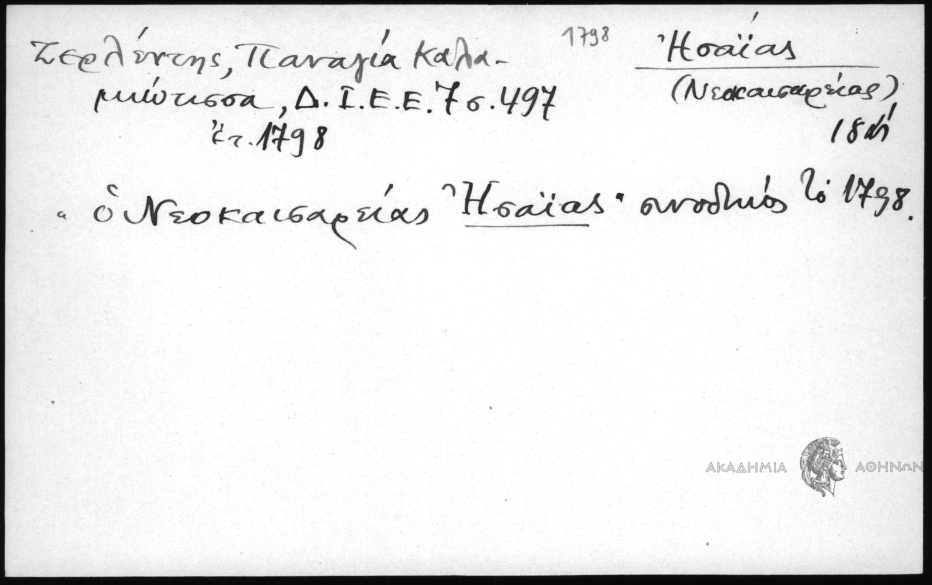 1798
Ζερλέντης, Παναγία Καλα-
μιώτισσα, Δ.Ι.Ε.Ε. 7 σ. 497
ἔτ. 1798
Ἡσαΐας
(Νεοκαισαρείας)
18
"ὁ Νεοκαισαρείας Ἡσαΐας" συνοδικός τὸ 1798.
ΑΚΑΔΗΜΙΑ ΑΘΗΝΩΝ